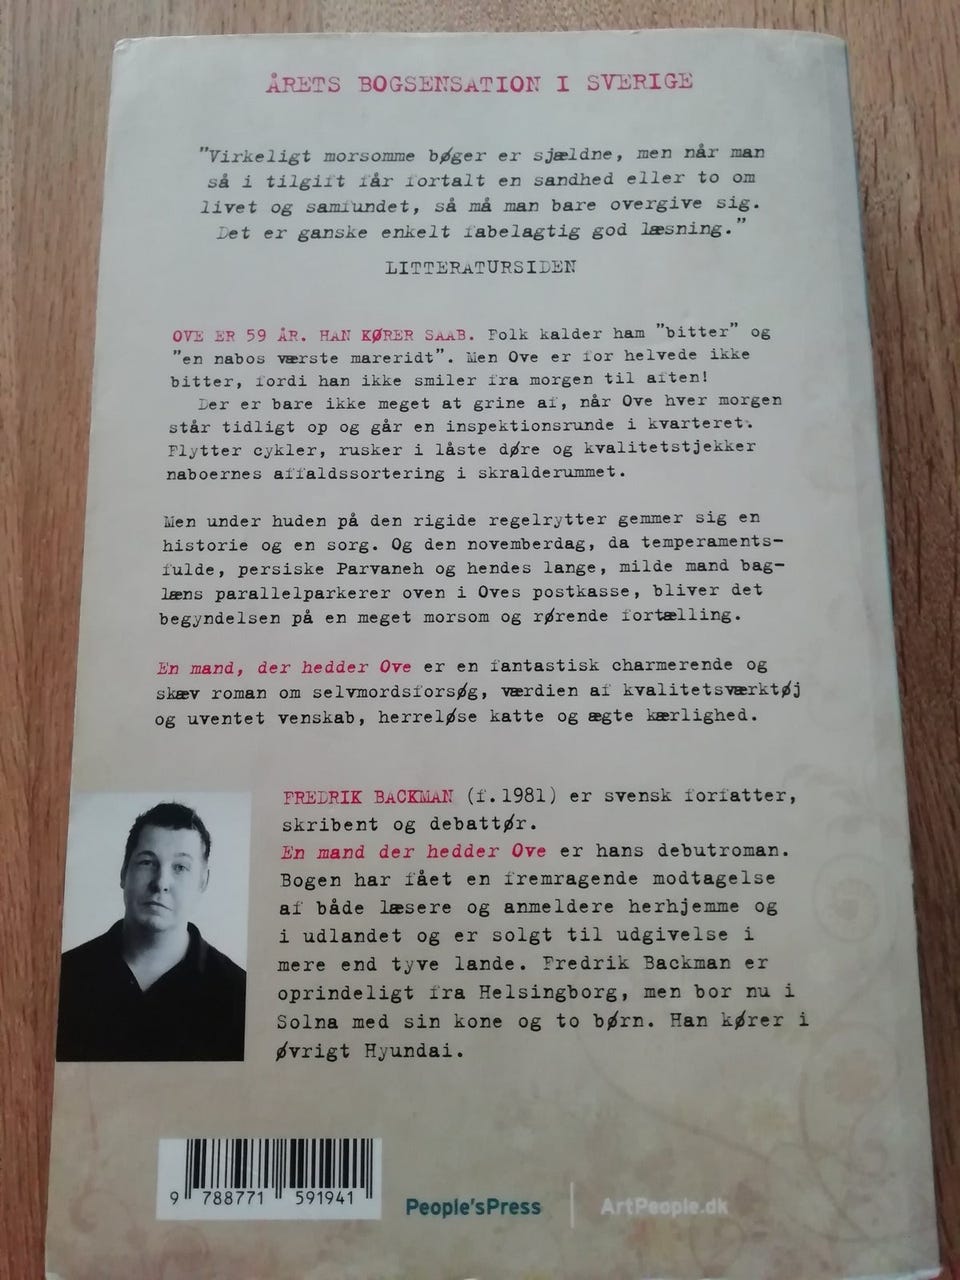 ÅRETS BOGSENSATION I SVERIGE
"Virkeligt morsomme bøger er sjældne, men når man
så i tilgift får fortalt en sandhed eller to om
livet og samfundet, så må man bare overgive sig.
Det er ganske enkelt fabelagtig god læsning."
LITTERATURSIDEN
OVE ER 59 ÅR. HAN KØRER SAAB. Folk kalder ham "bitter" og
"en nabos værste mareridt". Men Ove er for helvede ikke
bitter, fordi han ikke smiler fra morgen til aften!
Der er bare ikke meget at grine af, når Ove hver morgen
står tidligt op og går en inspektionsrunde i kvarteret.
Flytter cykler, rusker i låste døre og kvalitetstjekker
naboernes affaldssortering i skralderummet.
Men under huden på den rigide regelrytter gemmer sig en
historie og en sorg. Og den novemberdag, da temperaments-
fulde, persiske Parvaneh og hendes lange, milde mand bag-
læns parallelparkerer oven i Oves postkasse, bliver det
begyndelsen på en meget morsom og rørende fortælling.
En mand, der hedder Ove er en fantastisk charmerende og
skæv roman om selvmordsforsøg, værdien af kvalitetsværktøj
og uventet venskab, herreløse katte og ægte kærlighed.
FREDRIK BACKMAN (f.1981) er svensk forfatter,
skribent og debattør.
En mand der hedder Ove er hans debutroman.
Bogen har fået en fremragende modtagelse
af både læsere og anmeldere herhjemme og
i udlandet og er solgt til udgivelse i
mere end tyve lande. Fredrik Backman er
oprindeligt fra Helsingborg, men bor nu i
Solna med sin kone og to børn. Han kører i
øvrigt Hyundai.
9 788771 591941
People'sPress | ArtPeople.dk